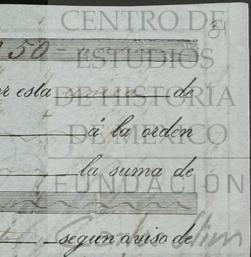 CENTRO DE
ESTUDIOS
DE HISTORIA
DE MEXICO
FUNDACIÓN
31
150=
esta unica de
á la orden
la suma de
segun aviso de